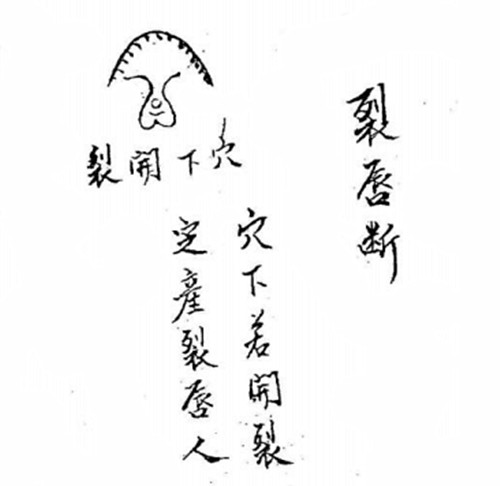 裂唇断
穴下開裂
穴下若開裂
定產裂唇人